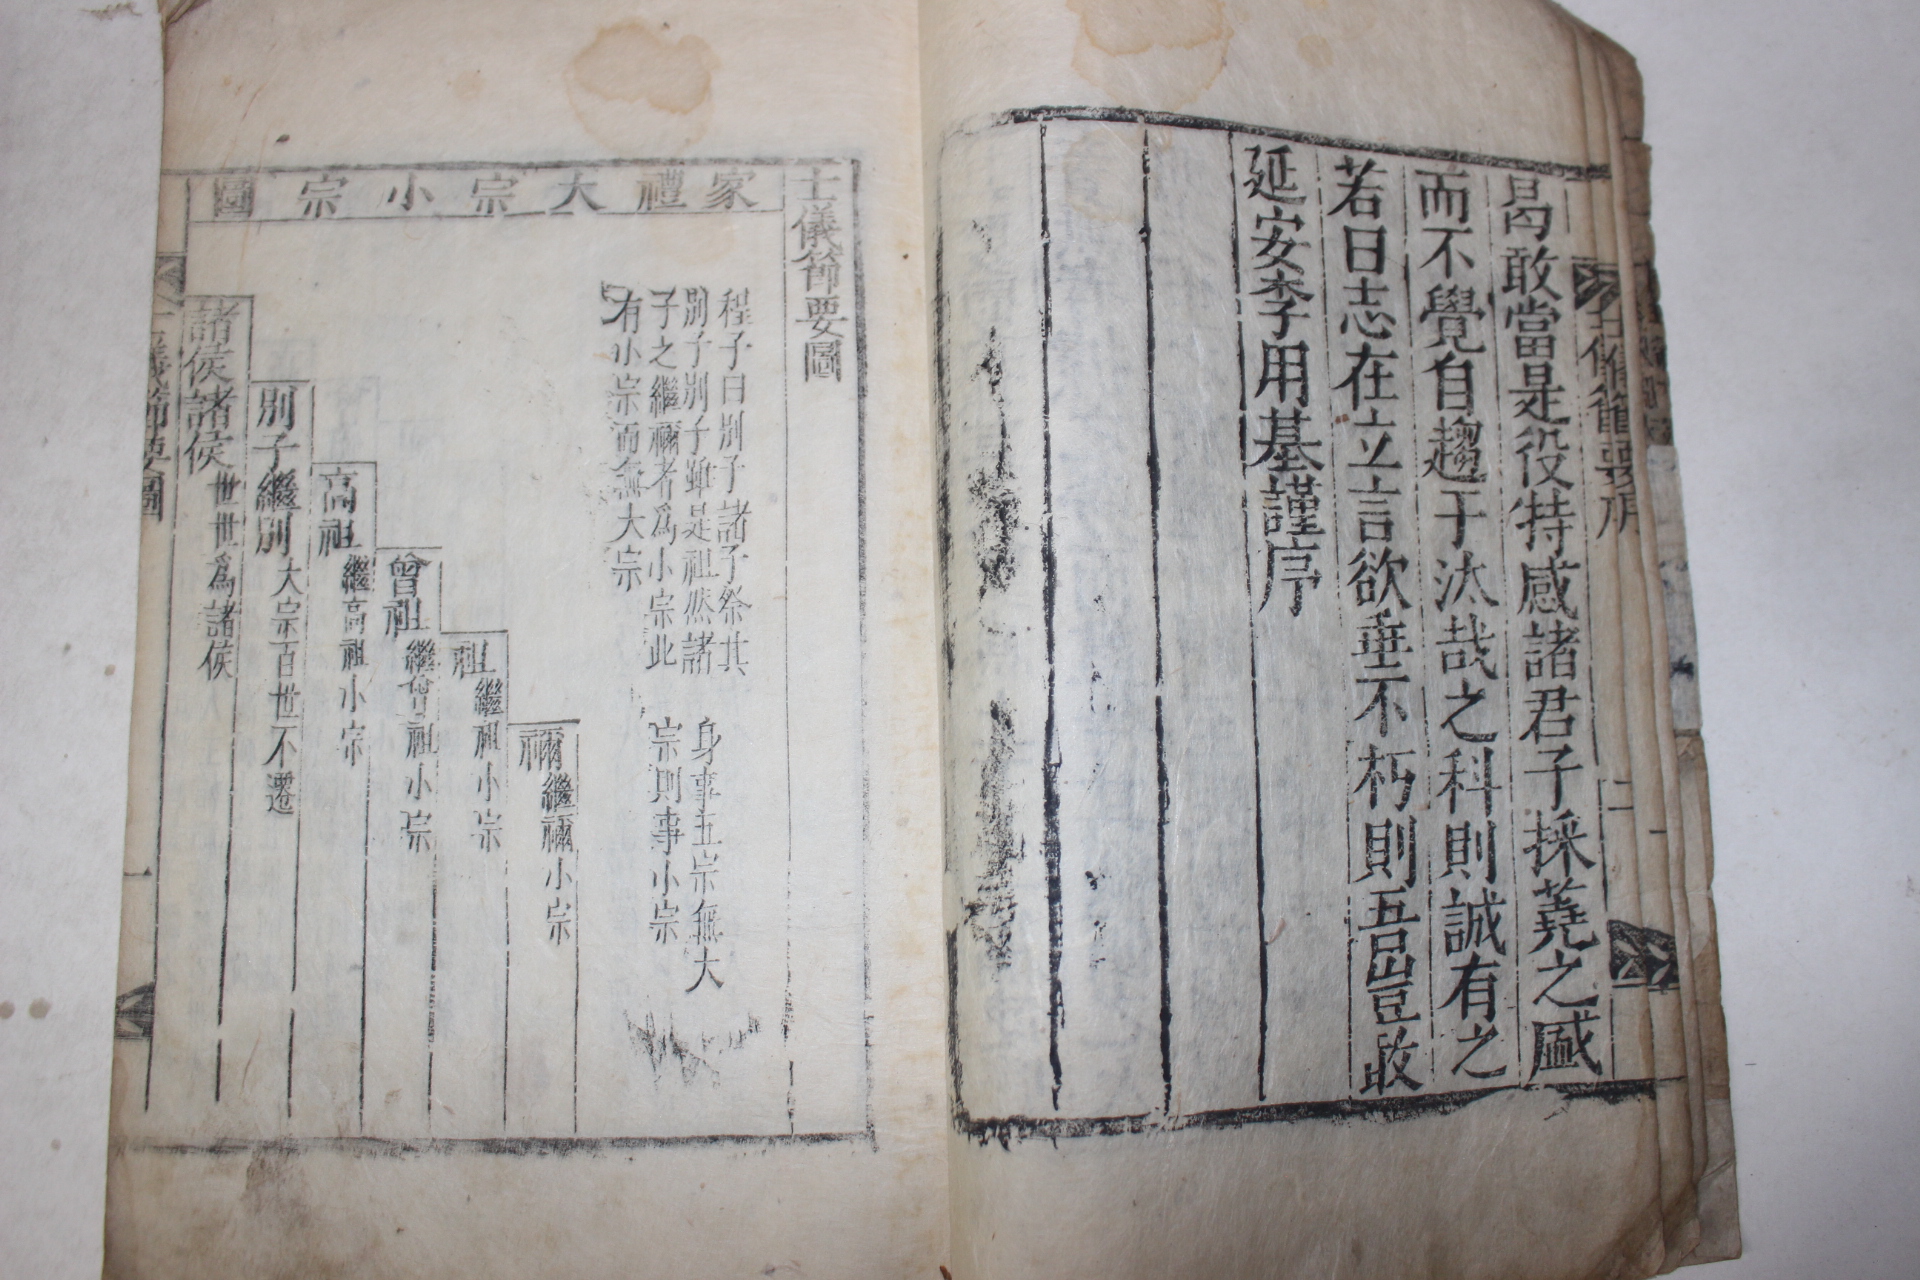 士儀節要序
二
曷敢當是役特感諸君子採蕘之盛
而不覺自趨于汰哉之科則誠有之
若曰志在立言欲垂不朽則吾豈敢
延安李用基謹序
士儀節要圖
家禮大宗小宗圖
程子曰別子諸子祭其
別子別子雖是祖然諸
子之繼禰者爲小宗此
有小宗而無大宗
身事五宗無大
宗則事小宗
禰繼禰小宗
祖繼祖小宗
曾祖繼曾祖小宗
高祖繼高祖小宗
別子繼別大宗百世不遷
諸侯諸侯世世爲諸侯
士儀節要圖
一